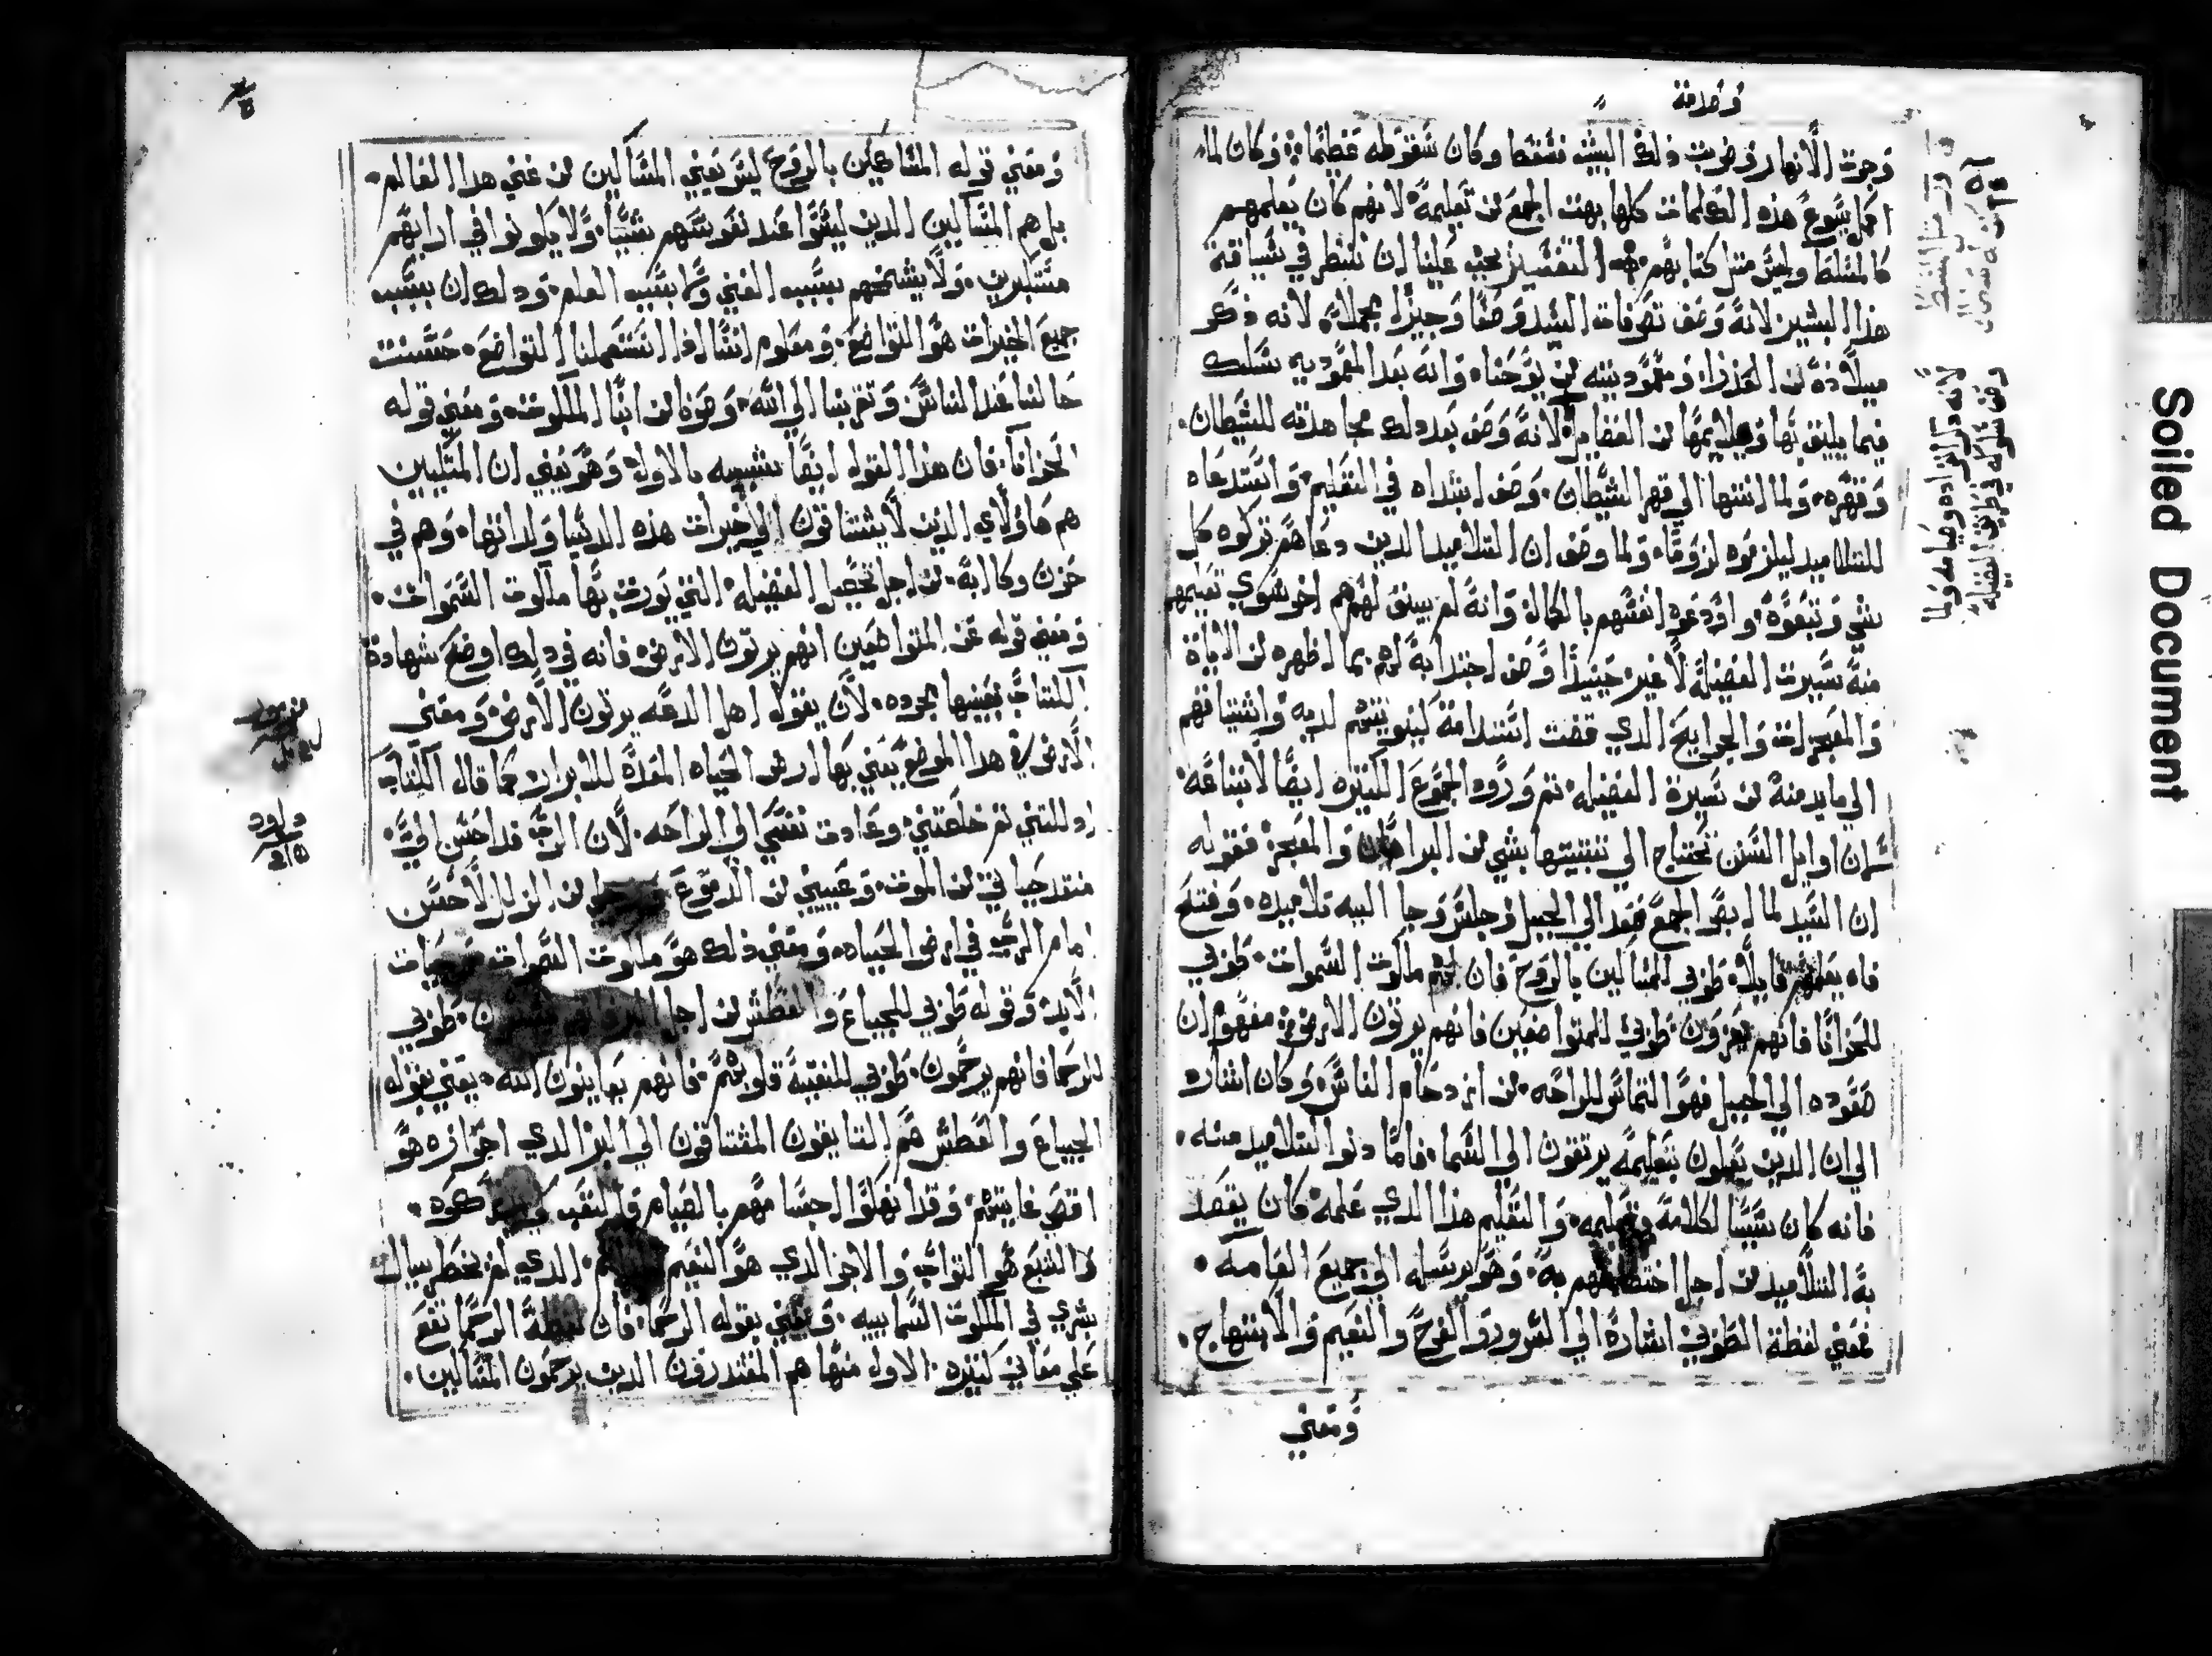 وصدمة
وجرت الانهار وضربت ذلك البيت فسقط وكان سقوطه عظيما وكان لما
اكمل يسوع هذه الكلمات كلها بهت الجمع من تعليمه لانهم كان يعلمهم
كالمتسلط وليس مثل كتابهم التفسير يجب علينا ان ننظر في سياقة
هذا البشير لانه وصف تصرفات السيد وصفا وجيزا مجملا لانه ذكر
ميلاده من العذرا ومعموديته من يوحنا وانه بعد المعموديه سلك
فيما يليق بها ويلايمها من الفضايل لانه وصف بعد دلك مجاهدته للشيطان
وقهره ولما انتها الي قهر الشيطان وصف ابتداه في التعليم واستدعاه
للتلاميد ليلزموه لزوما ولما وصف ان التلاميد الدين دعاهم تركوه كل
شي وتبعوه واودعوه انفسهم بالكمال وانه لم يبق لهم اخر سوي تعليمهم
منه سيرت الفضيله لا غير حينيدا وصف اجتدابه لهم بما اظهره من الاياة
والمعجزات والجرايح الدي قضت استدامة لبثهم لديه واشتياقهم
الي ما يدمنه من سيرة الفضيله تم ورود الجموع الكتيره ايضا لاتباعه
لان اوايل السنن تحتاج الي تتبيتها بشي من البراهين والمعجز فقوله
ان السيد لما ابصر الجمع صعد الي الجبل وجلس وجا اليه تلاميده وفتح
فاه يعلمهم قايلا طوبي للمساكين بالروح فان لهم ملكوت السموات طوبي
للحزانا فانهم يعزون طوبي للمتواضعين فانهم يرتون الارض مفهوم ان
صعوده الي الجبل فهو التماس للراحه من ازدحام الناس وكان اشاره
الي ان الدين يعملون بتعليمه يرتقون الي السما فاما دنوا التلاميد منه
فانه كان سببا لكلامه وتعليمه والتعليم هذا الدي علمه كان يقصد
به التلاميد من اجل اختصاصهم به وهو يرسله الي جميع العامه
فمعني لفظة الطوبي اشارة الي السرور والفرح والنعيم والابتهاج
ومعني
لانه دكر انفراده وصيامه ولما
وصف سلوكه في طريق الفضيله
ومعني قوله المساكين بالروح ليس يعني المساكين من غني هدا العالم
بل هم المساكين الدين ليقتنوا عند نفوسهم شيا ولا يكونوا في ارايهم
متكبرين ولا يشمخهم بسبب الغني ولا بسبب العلم ودلك ان بسبب
جميع الخيرات هو التواضع ومعلوم اننا ادا استعملنا التواضع حسنت
حالنا عند الناس وتقربنا الي الله وصرنا من ابنا الملكوت ومعني قوله
الحزانا فان هذا القول ايضا شبيه بالاول وهو يعني ان المتكيين
هم هاولاي الذين لا يشتاقون الي خيرات هذه الدنيا ولداتها وهم في
حزن وكاابة من اجل تحصيل الفضيله التي يورت بها ملكوت السموات
ومعني قوله عن المتواضعين انهم يرتون الارض فانه في دلك اوضح شهادة
الكتاب بعينها مجوده لان يقول اهل الدعه يرتون الارض ومعني
الارض في هدا الموضع يعني بها ارض الحياه المعدة للابرار كما قال الكتاب
ادللتني تم خلصتني وعادت نفسي الي الراحه لان الرب قد احسن الي
منقد حياتي من الموت وعيني من الدموع من الزلل لاحسن
امام الرب في ارض الحياه ومعني ذلك هو ملكوت السموات
الابد وقوله طوبي للجياع والعطاش من اجل البر فانهم يشبعون طوبي
للرحما فانهم يرحمون طوبي للنقية قلوبهم فانهم يعاينون الله يعني بقوله
الجياع والعطاش هم التايقون المشتاقون الي البر الدي احرازه هو
اقصي غايتهم وقد انهكوا اجسامهم بالصيام والتعب
والشبع هو التواب والاجر الدي هو النعيم الدايم الدي لم يخطر ببال
بشري في الملكوت السمايه ويعني بقوله الرحما فان لفظة الرحما تقع
علي معاني كتيره الاول منها هم المقتدرون الدين يرحمون المساكين
داود
Soiled Document